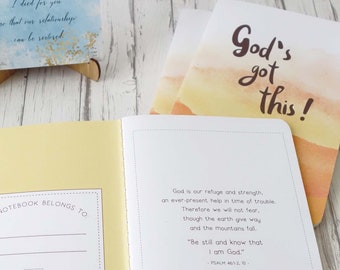 I died for you
so that our relationship
can be restored.
God's
got
this!
NOTEBOOK BELONGS TO:
God is our refuge and strength,
an ever-present help in time of trouble.
Therefore we will not fear,
though the earth give way
and the mountains fall.
"Be still and know that
I am God."
- PSALM 46:1,2, 10 -